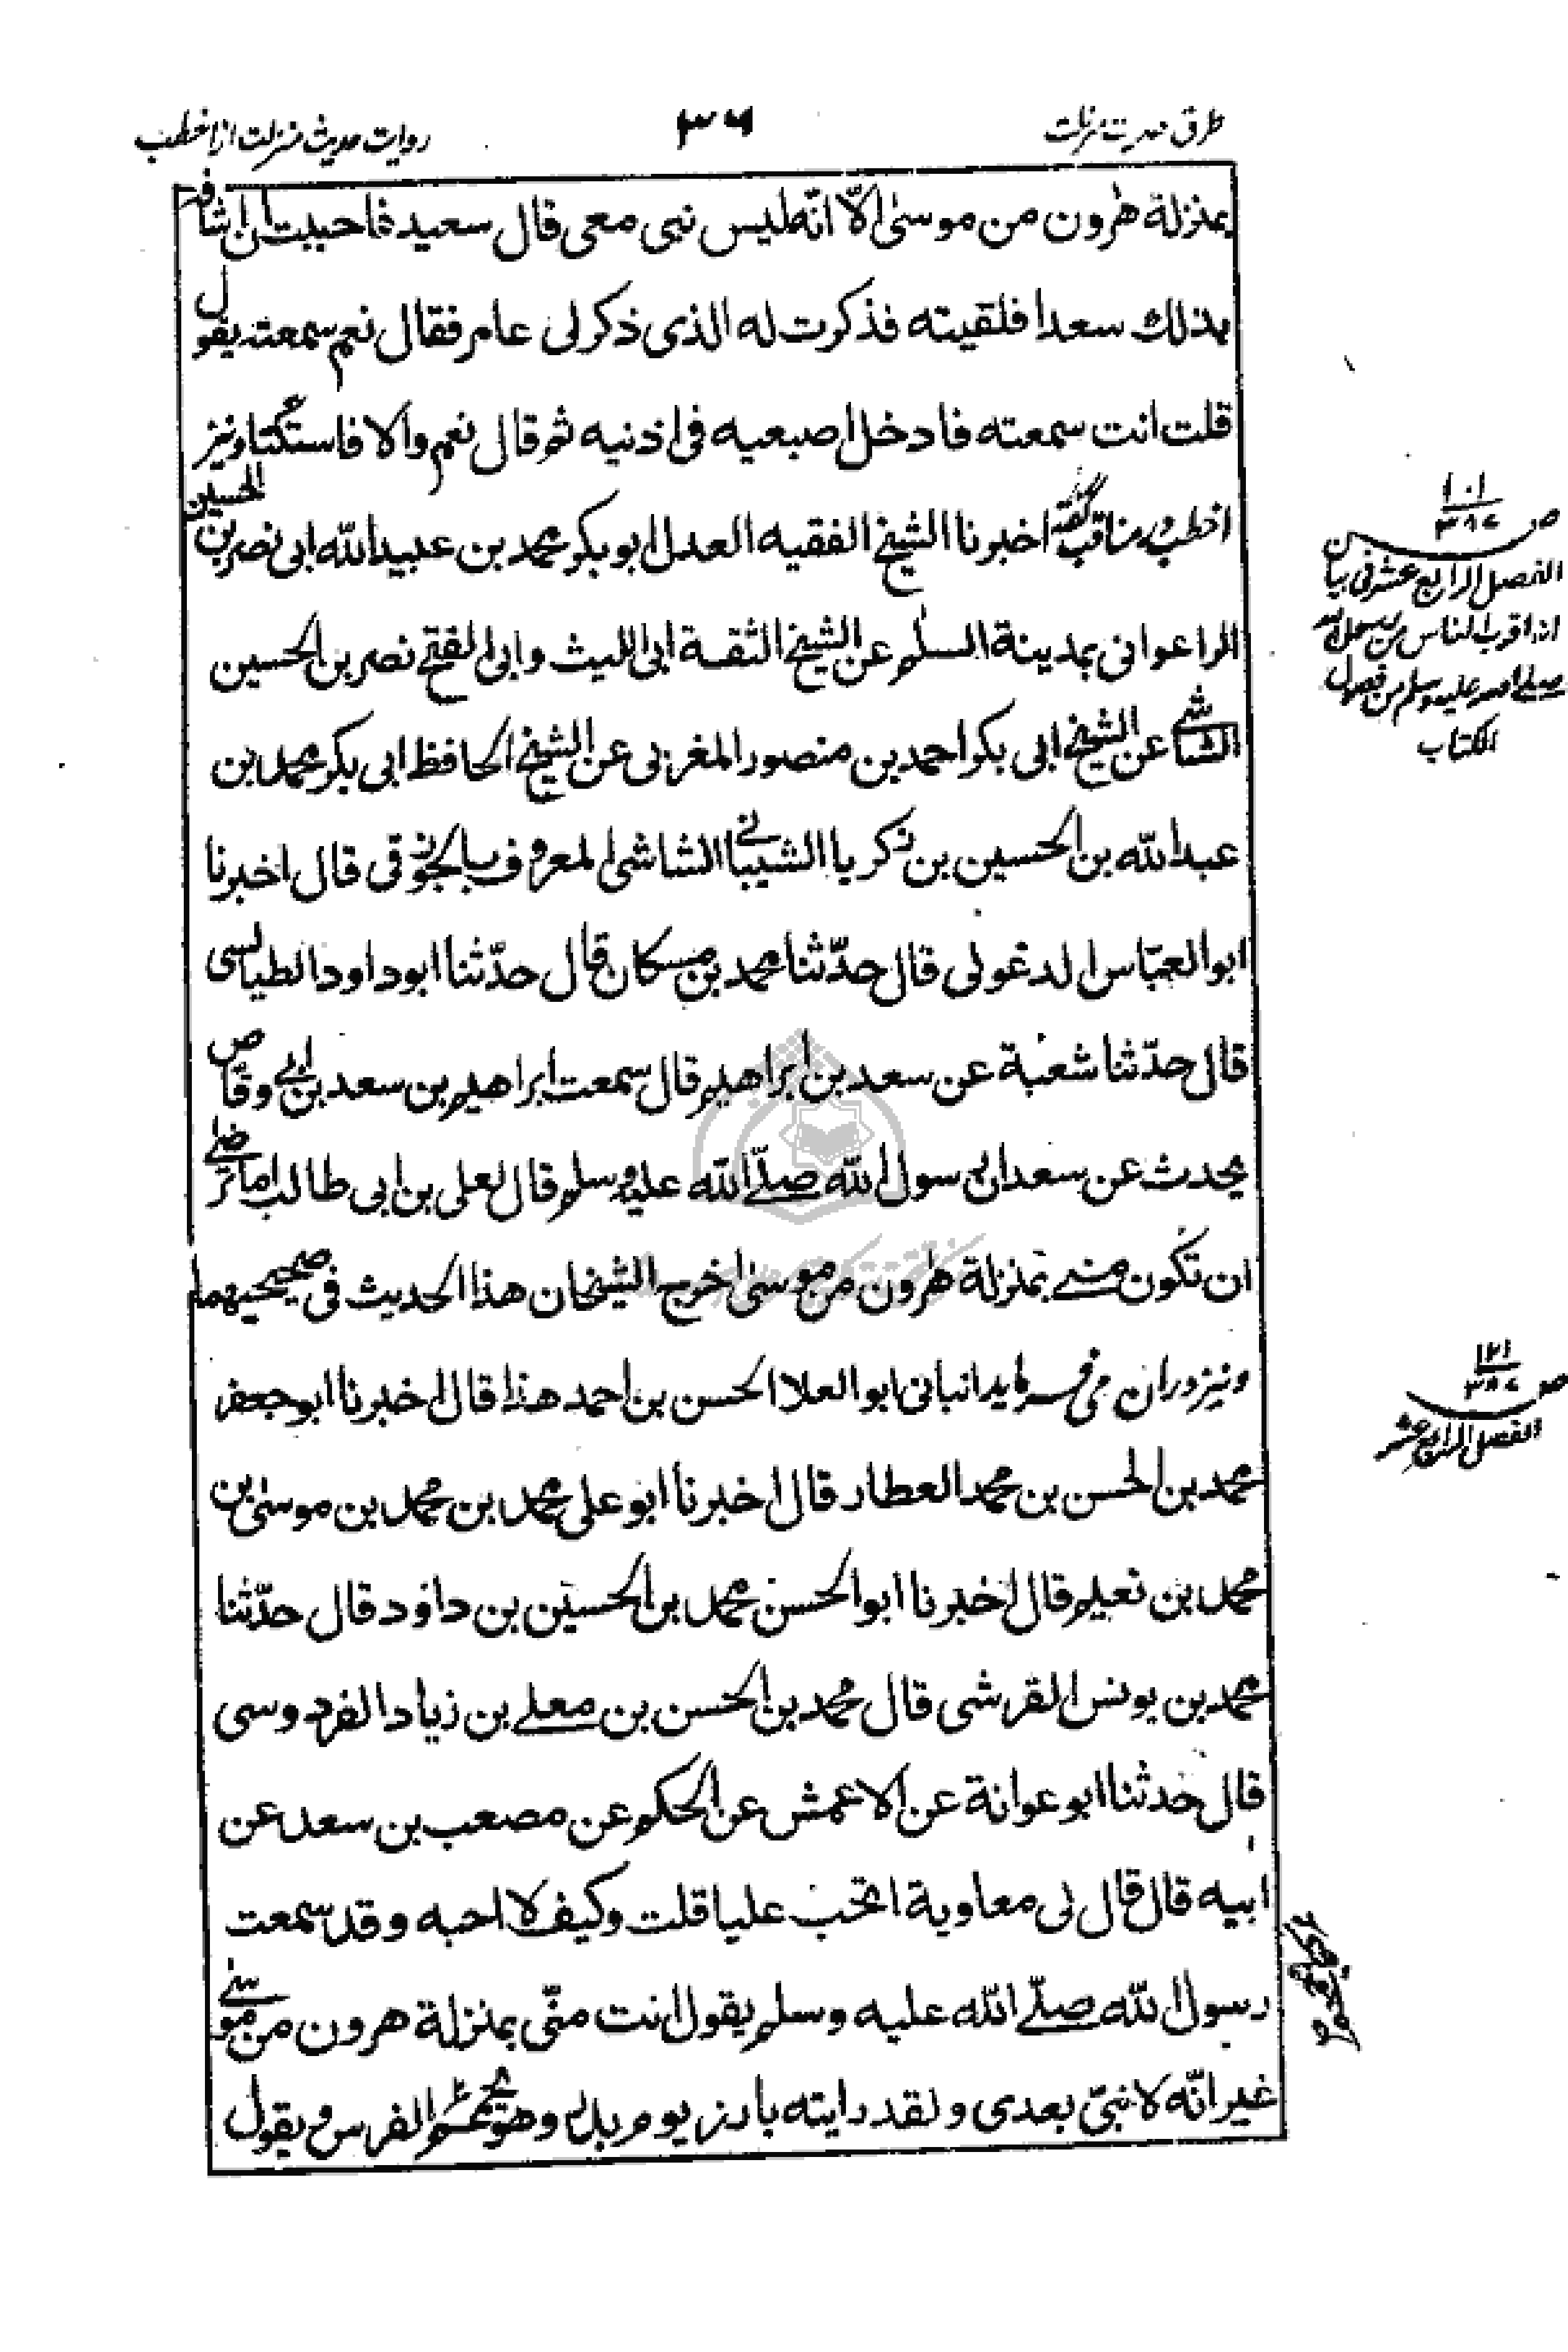 طرق حدیث منزلت
۳۶
روایت حدیث منزلت از اخطب
بمنزلة هٰرون من موسىٰ الّا انّه ليس نبى معى قال سعيد فاحببت ان اشافه
بذلك سعدا فلقيته فذكرت له الذى ذكر لى عامر فقال نعم سمعته يقول
قلت انت سمعته فادخل اصبعيه فى اذنيه ثم قال نعم والا فاستكتا ونیز
اخطب در مناقب گفته اخبرنا الشيخ الفقيه العدل ابو بكر محمد بن عبيد الله ابى نصر بن الحسين
الراعوانى بمدينة السلم عن الشيخ الثقة ابى الليث وابى الفتح نصر بن الحسين
الشاشى عن الشيخ ابى بكر احمد بن منصور المغربى عن الشيخ الحافظ ابى بكر محمد بن
عبد الله بن الحسين بن زكريا الشيبانى الشاشى المعروف بالجوزقى قال اخبرنا
ابو العبّاس الدغولى قال حدّثنا محمد بن مسكان قال حدّثنا ابو داود الطيالسى
قال حدّثنا شعبة عن سعد بن ابراهيم قال سمعت ابراهيم بن سعد بن ابى وقاص
يحدث عن سعد ان رسول الله صلّى الله عليه وسلم قال لعلى بن ابى طالب اما ترضى
ان تكون منى بمنزلة هٰرون من موسىٰ اخرج الشيخان هذا الحديث فى صحيحيهما
ونیز در ان می فرماید انبانى ابو العلا الحسن بن احمد هذا قال اخبرنا ابو جعفر
محمد بن الحسن بن محمد العطار قال اخبرنا ابو على محمد بن محمد بن موسىٰ بن
محمد بن نعيم قال اخبرنا ابو الحسن محمد بن الحسين بن داؤد قال حدّثنا
محمد بن يونس القرشى قال محمد بن الحسن بن معلى بن زياد الفردوسى
قال حدثنا ابو عوانة عن الاعمش عن الحكم عن مصعب بن سعد عن
ابيه قال قال لى معاوية اتحب عليا قلت وكيف لا احبه وقد سمعت
رسول الله صلّى الله عليه وسلم يقول انت منّى بمنزلة هرون من موسى
غير انّه لا نبىّ بعدى ولقد رايته بارز يوم بدر وهو يحمحم الفرس ويقول
ص ۱۰۱/۳۸۷
الفصل الرابع عشر فى بيان
انه اقرب الناس من رسول الله
صلى الله عليه وسلم من فصول
الكتاب
ص ۱۲۱/۳۸۷
الفصل الرابع عشر